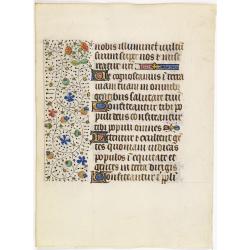 nobis illuminet vultū
suum super nos et mise
reatur nr̄i
Ut cognoscamus in terra
viam tuam in omnibꝰ
gentibus salutare tuū
Confiteantur tibi po
puli deus confiteantur
tibi populi omnes
Letentur et exultent gē
tes quoniam iudicas
populos in equitate et
gentes in terra dirigis
Confiteantur t ppl̄i